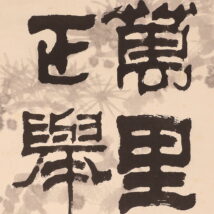 萬里
正舉